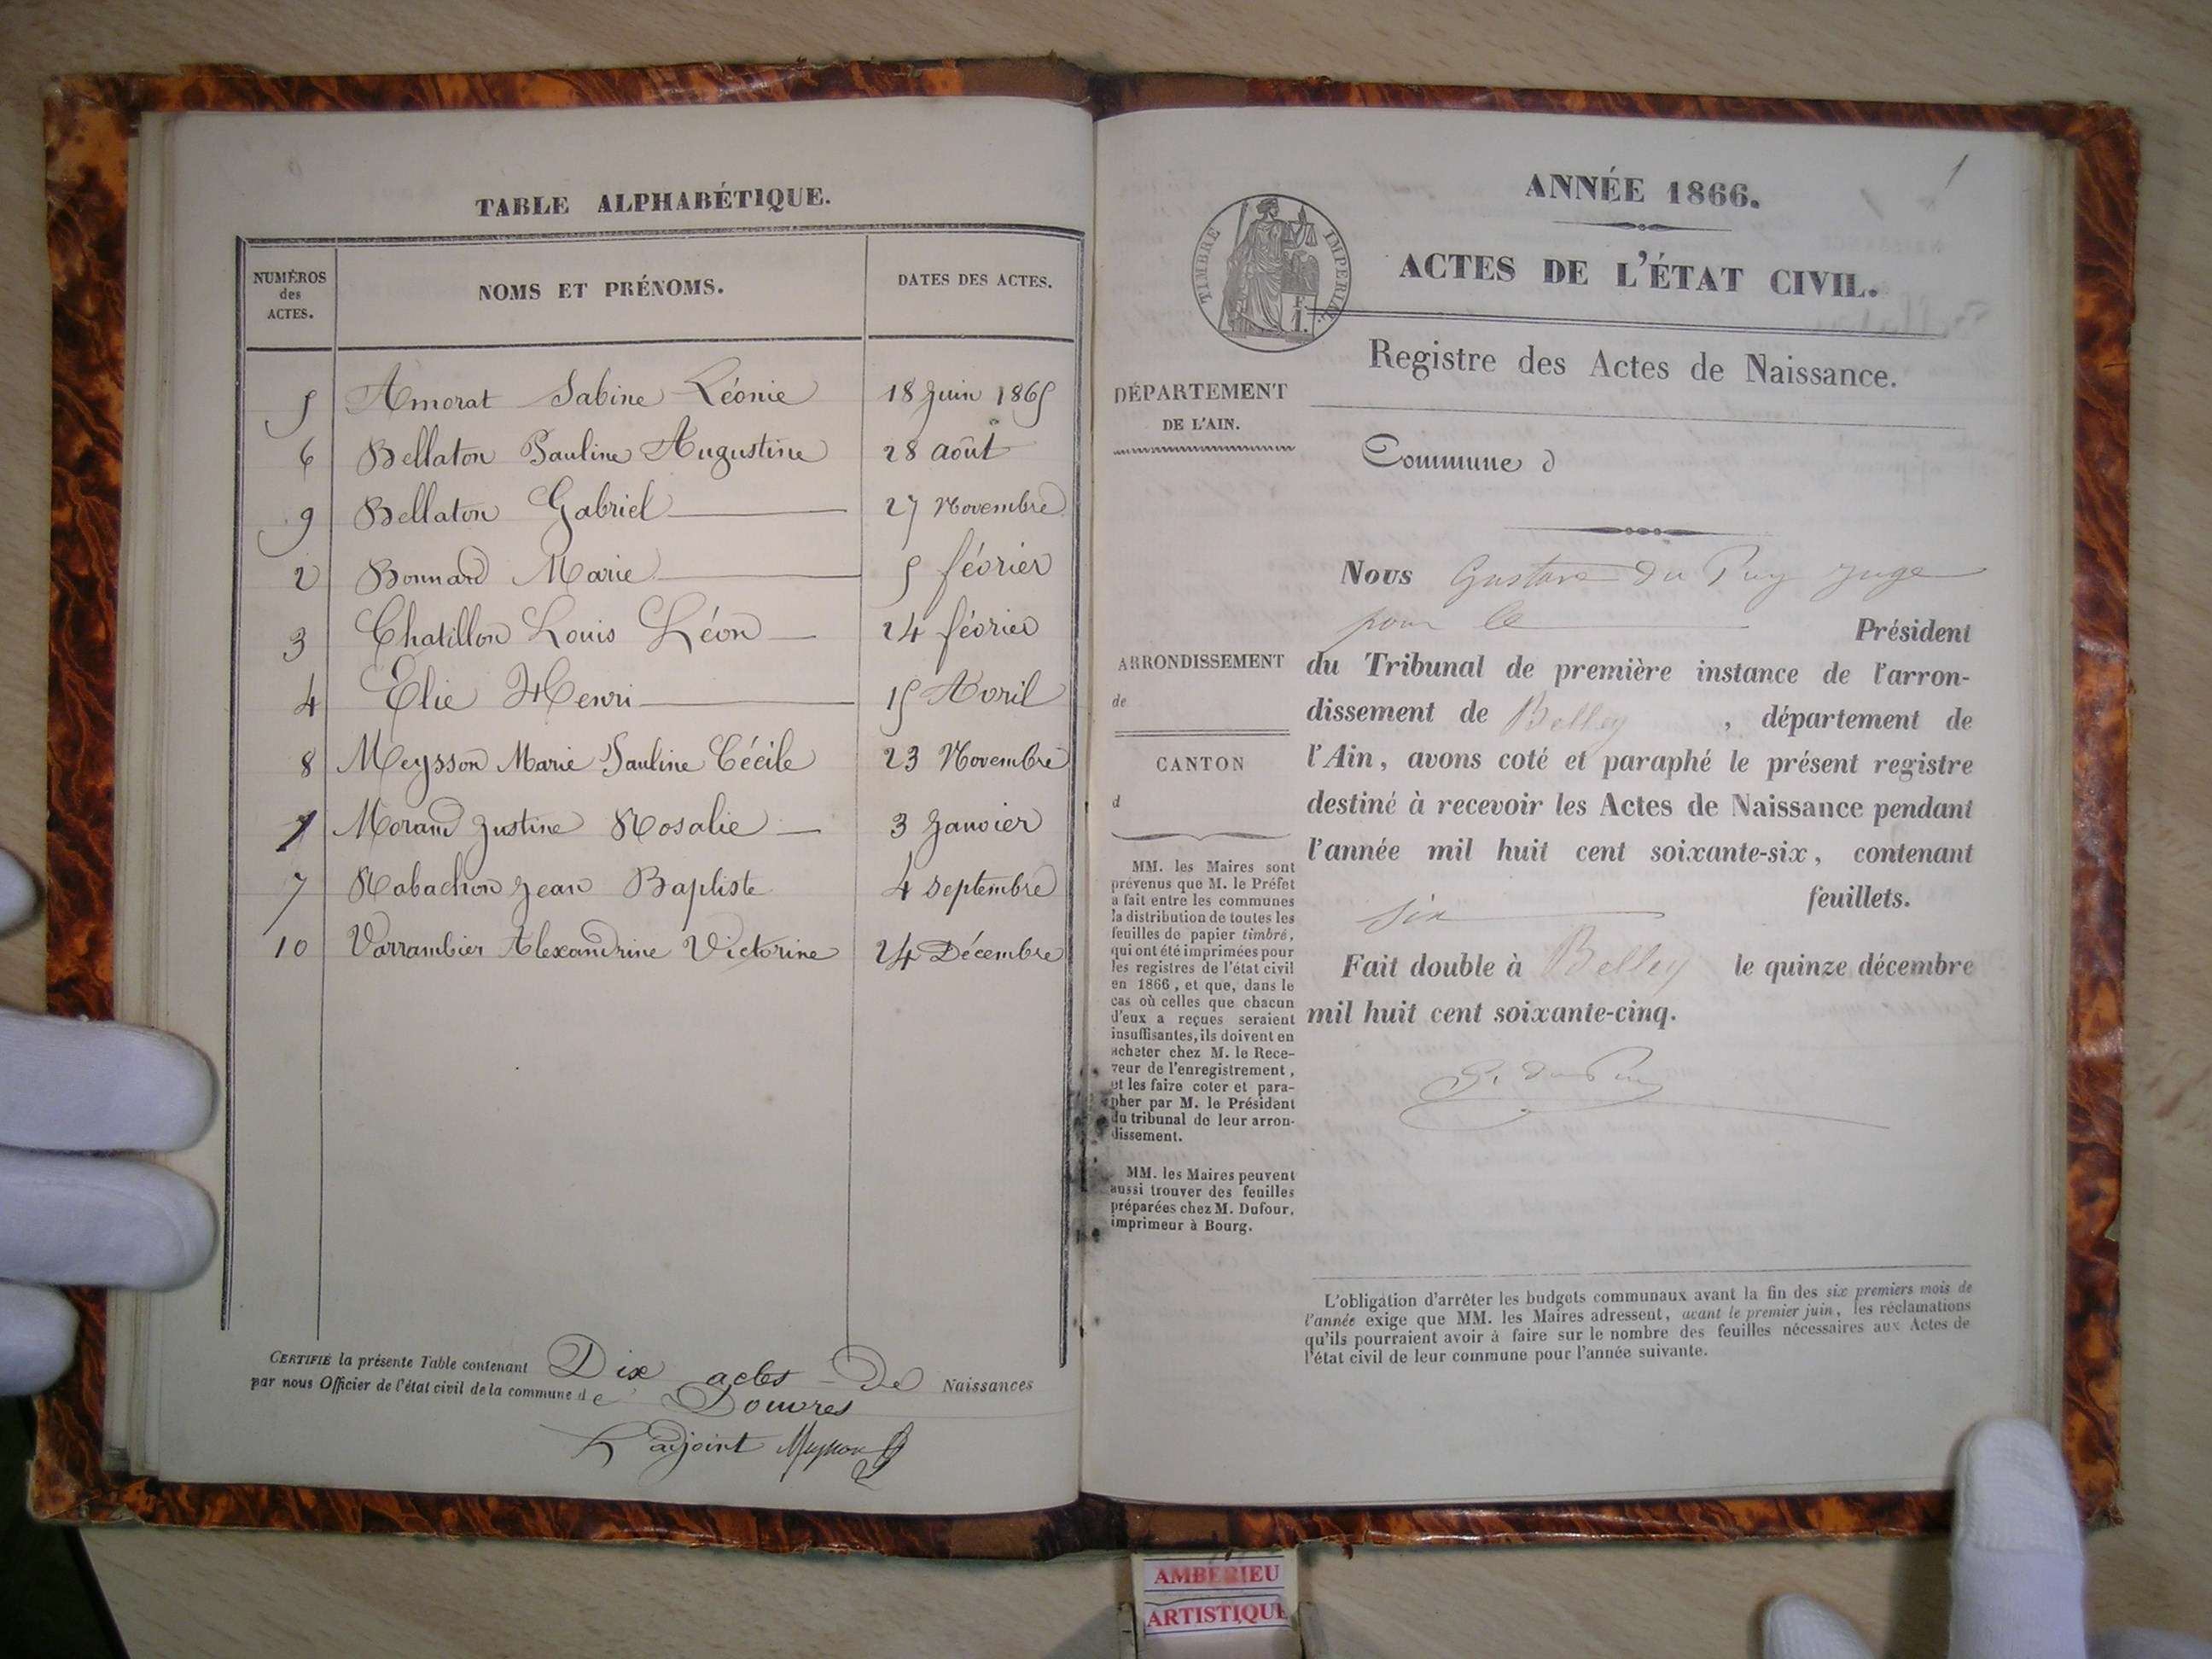 TABLE ALPHABÉTIQUE.
NUMÉROS des ACTES. NOMS ET PRÉNOMS. DATES DES ACTES.
5 Amorat Sabine Léonie 18 Juin 1865
6 Bellaton Pauline Augustine 28 août
9 Bellaton Gabriel 27 Novembre
2 Bonnard Marie 5 février
3 Chatillon Louis Léon 24 février
4 Elie Henri 15 Avril
8 Meysson Marie Pauline Cécile 23 Novembre
1 Morand Justine Rosalie 3 Janvier
7 Rabachon Jean Baptiste 4 Septembre
10 Varrambier Alexandrine Victorine 24 Décembre
CERTIFIÉ la présente Table contenant Dix actes de Naissances
par nous Officier de l'état civil de la commune de Douvres
L'adjoint Meysson
1
ANNÉE 1866.
TIMBRE IMPERIAL
ACTES DE L'ÉTAT CIVIL.
Registre des Actes de Naissance.
DÉPARTEMENT
DE L'AIN.
Commune d
ARRONDISSEMENT
de
CANTON
d
MM. les Maires sont
prévenus que M. le Préfet
a fait entre les communes
la distribution de toutes les
feuilles de papier timbré,
qui ont été imprimées pour
les registres de l'état civil
en 1866, et que, dans le
cas où celles que chacun
d'eux a reçues seraient
insuffisantes, ils doivent en
acheter chez M. le Rece-
veur de l'enregistrement,
et les faire coter et para-
pher par M. le Président
du tribunal de leur arron-
dissement.
MM. les Maires peuvent
aussi trouver des feuilles
préparées chez M. Dufour,
imprimeur à Bourg.
Nous Gustave du Puy juge
pour le Président
du Tribunal de première instance de l'arron-
dissement de Belley, département de
l'Ain, avons coté et paraphé le présent registre
destiné à recevoir les Actes de Naissance pendant
l'année mil huit cent soixante-six, contenant
six feuillets.
Fait double à Belley le quinze décembre
mil huit cent soixante-cinq.
G. du Puy
L'obligation d'arrêter les budgets communaux avant la fin des six premiers mois de
l'année exige que MM. les Maires adressent, avant le premier juin, les réclamations
qu'ils pourraient avoir à faire sur le nombre des feuilles nécessaires aux Actes de
l'état civil de leur commune pour l'année suivante.
AMBERIEU
ARTISTIQUE